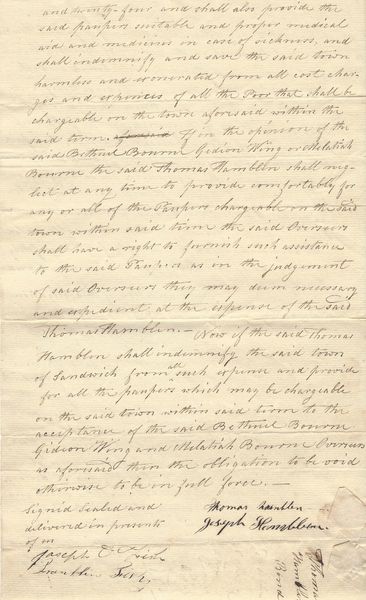 and twenty-four and shall also provide the
said paupers suitable and proper medical
aid and medicines in case of sickness, and
shall indemnify and save the said town
harmless and exonerated from all cost char-
ges and expences of all the Poor that shall be
chargeable on the town aforsaid within the
said term. aforesaid If in the opinion of the
said Bethuel Bourne Gidion Wing or Melatiah
Bourne the said Thomas Hamblen shall neg-
lect at any time to provide comfortably for
any or all of the Paupers chargeable on the said
town within said time the said Overseers
shall have a right to furnish such assistance
to the said Paupers as in the judgement
of said Overseers they may deem necessary
and expedient at the expense of the said
Thomas Hamblen.— Now if the said Thomas
Hamblen shall indemnify the said town
of Sandwich from all such expense and provide
for all the paupers which may be chargeable
on the said town within said term to the
acceptance of the said Bethuel Bourne
Gideon Wing and Melatiah Bourne Overseers
as aforesaid then the obligation to be void
otherwise to be in full force.—
Signed Sealed and
delivered in presents
of us
Thomas Hamblen
Joseph Hamblen
Joseph
Franklin
Thomas
Bond